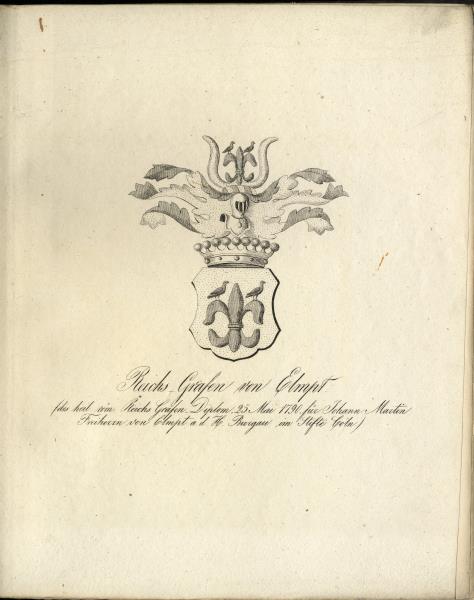 Reichs-Grafen von Elmpt
(des heil. röm. Reichs Grafen-Diplom 25 Mai 1790 für Johann Martin
Freiherrn von Elmpt a. d. H. Burgau im Stifte Cöln)